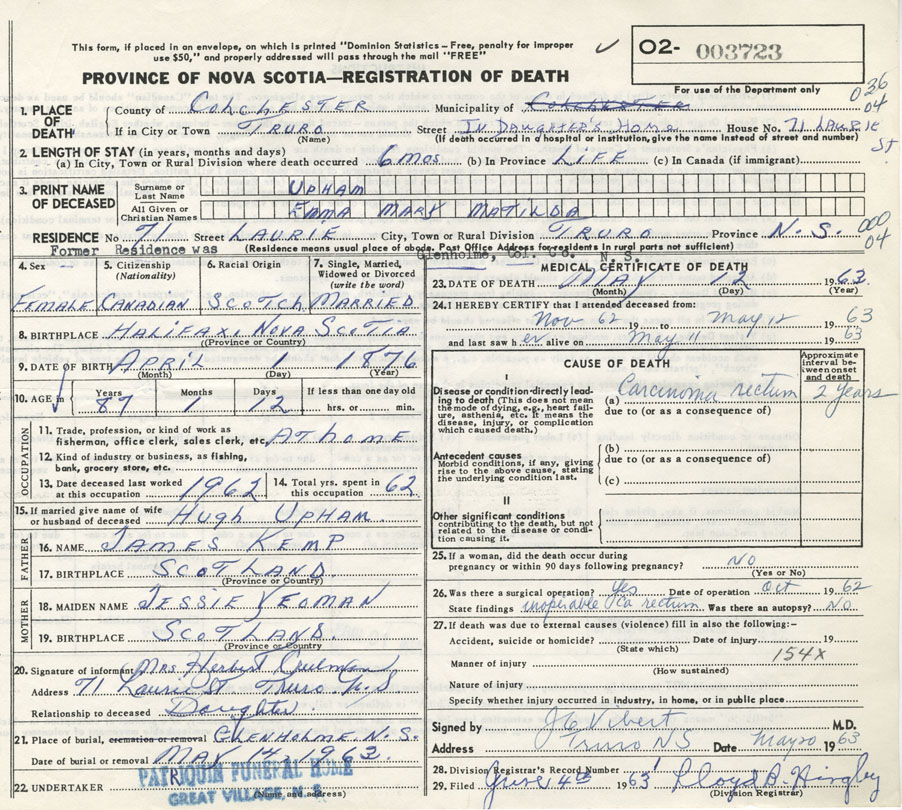 This form, if placed in an envelope, on which is printed "Dominion Statistics – Free, penalty for improper
use $50," and properly addressed will pass through the mail "FREE"
✓
O2- 003723
PROVINCE OF NOVA SCOTIA—REGISTRATION OF DEATH
For use of the Department only
036
04
1. PLACE OF DEATH
County of COLCHESTER Municipality of COLCHESTER
If in City or Town TRURO Street IN DAUGHTER'S HOME House No. 71 LAURIE ST
(Name) (If death occurred in a hospital or institution, give the name instead of street and number)
2. LENGTH OF STAY (in years, months and days)
(a) In City, Town or Rural Division where death occurred 6 mos (b) In Province LIFE (c) In Canada (if immigrant)
3. PRINT NAME OF DECEASED
Surname or Last Name UPHAM
All Given or Christian Names EMMA MARY MATILDA
RESIDENCE No. 71 Street LAURIE City, Town or Rural Division TRURO Province N.S.
000
04
(Residence means usual place of abode. Post Office Address for residents in rural parts not sufficient)
Former Residence was Glenholme, Col. Co. N. S.
4. Sex FEMALE
5. Citizenship (Nationality) CANADIAN
6. Racial Origin SCOTCH
7. Single, Married, Widowed or Divorced (write the word) MARRIED
8. BIRTHPLACE HALIFAX, NOVA SCOTIA
(Province or Country)
9. DATE OF BIRTH APRIL 1 1876
(Month) (Day) (Year)
10. AGE in Years 87 Months 1 Days 12 If less than one day old hrs. or min.
OCCUPATION
11. Trade, profession, or kind of work as fisherman, office clerk, sales clerk, etc. AT HOME
12. Kind of industry or business, as fishing, bank, grocery store, etc.
13. Date deceased last worked at this occupation 1962
14. Total yrs. spent in this occupation 62
15. If married give name of wife or husband of deceased HUGH UPHAM
FATHER
16. NAME JAMES KEMP
17. BIRTHPLACE SCOTLAND
(Province or Country)
MOTHER
18. MAIDEN NAME JESSIE YEOMAN
19. BIRTHPLACE SCOTLAND.
(Province or Country)
20. Signature of informant Mrs Herbert
Address 71 Laurie St Truro N.S
Relationship to deceased Daughter
21. Place of burial, cremation or removal GLENHOLME N.S.
Date of burial or removal MAY 14, 1963.
22. UNDERTAKER PATRIQUIN FUNERAL HOME
GREAT VILLAGE, N. S.
(Name and address)
MEDICAL CERTIFICATE OF DEATH
23. DATE OF DEATH MAY 12 1963
(Month) (Day) (Year)
24. I HEREBY CERTIFY that I attended deceased from:
Nov 62 19 to May 12 1963
and last saw her alive on May 11 1963
CAUSE OF DEATH
Approximate interval between onset and death
I
Disease or condition directly leading to death (This does not mean the mode of dying, e.g., heart failure, asthenia, etc. It means the disease, injury, or complication which caused death.)
(a) Carcinoma rectum 2 years
due to (or as a consequence of)
Antecedent causes
Morbid conditions, if any, giving rise to the above cause, stating the underlying condition last.
(b)
due to (or as a consequence of)
(c)
II
Other significant conditions
contributing to the death, but not related to the disease or condition causing it.
25. If a woman, did the death occur during pregnancy or within 90 days following pregnancy? NO
(Yes or No)
26. Was there a surgical operation? Yes Date of operation Oct 1962
State findings inoperable Ca rectum Was there an autopsy? NO
27. If death was due to external causes (violence) fill in also the following:–
Accident, suicide or homicide? Date of injury 19
(State which)
154X
Manner of injury
(How sustained)
Nature of injury
Specify whether injury occurred in industry, in home, or in public place
Signed by Vibert M.D.
Address Truro NS Date May 20 1963
28. Division Registrar's Record Number
29. Filed June 4th 1963 Lloyd
(Division Registrar)